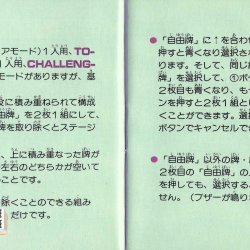 アモード)1人用、TO-
1人用、CHALLENG-
モードがありますが、基
に積み重ねられて構成
」を2枚1組にして、
牌を取り除くとステージ
、上に積み重なった牌が
左右のどちらかが空いて
ることです。
除くことのできる組み
だけです。
●「自由牌」に↑を合わせ
押すと青くなり選択され
ります。そして、同じ
牌」を選択して、①ボ
2枚目も青くなり、もう
ンを押すと2枚1組とし
くことができます。選択
ボタンでキャンセルで
●「自由牌」以外の牌・
2枚目の「自由牌」の
を押しても、選択するこ
せん。(ブザーが鳴り